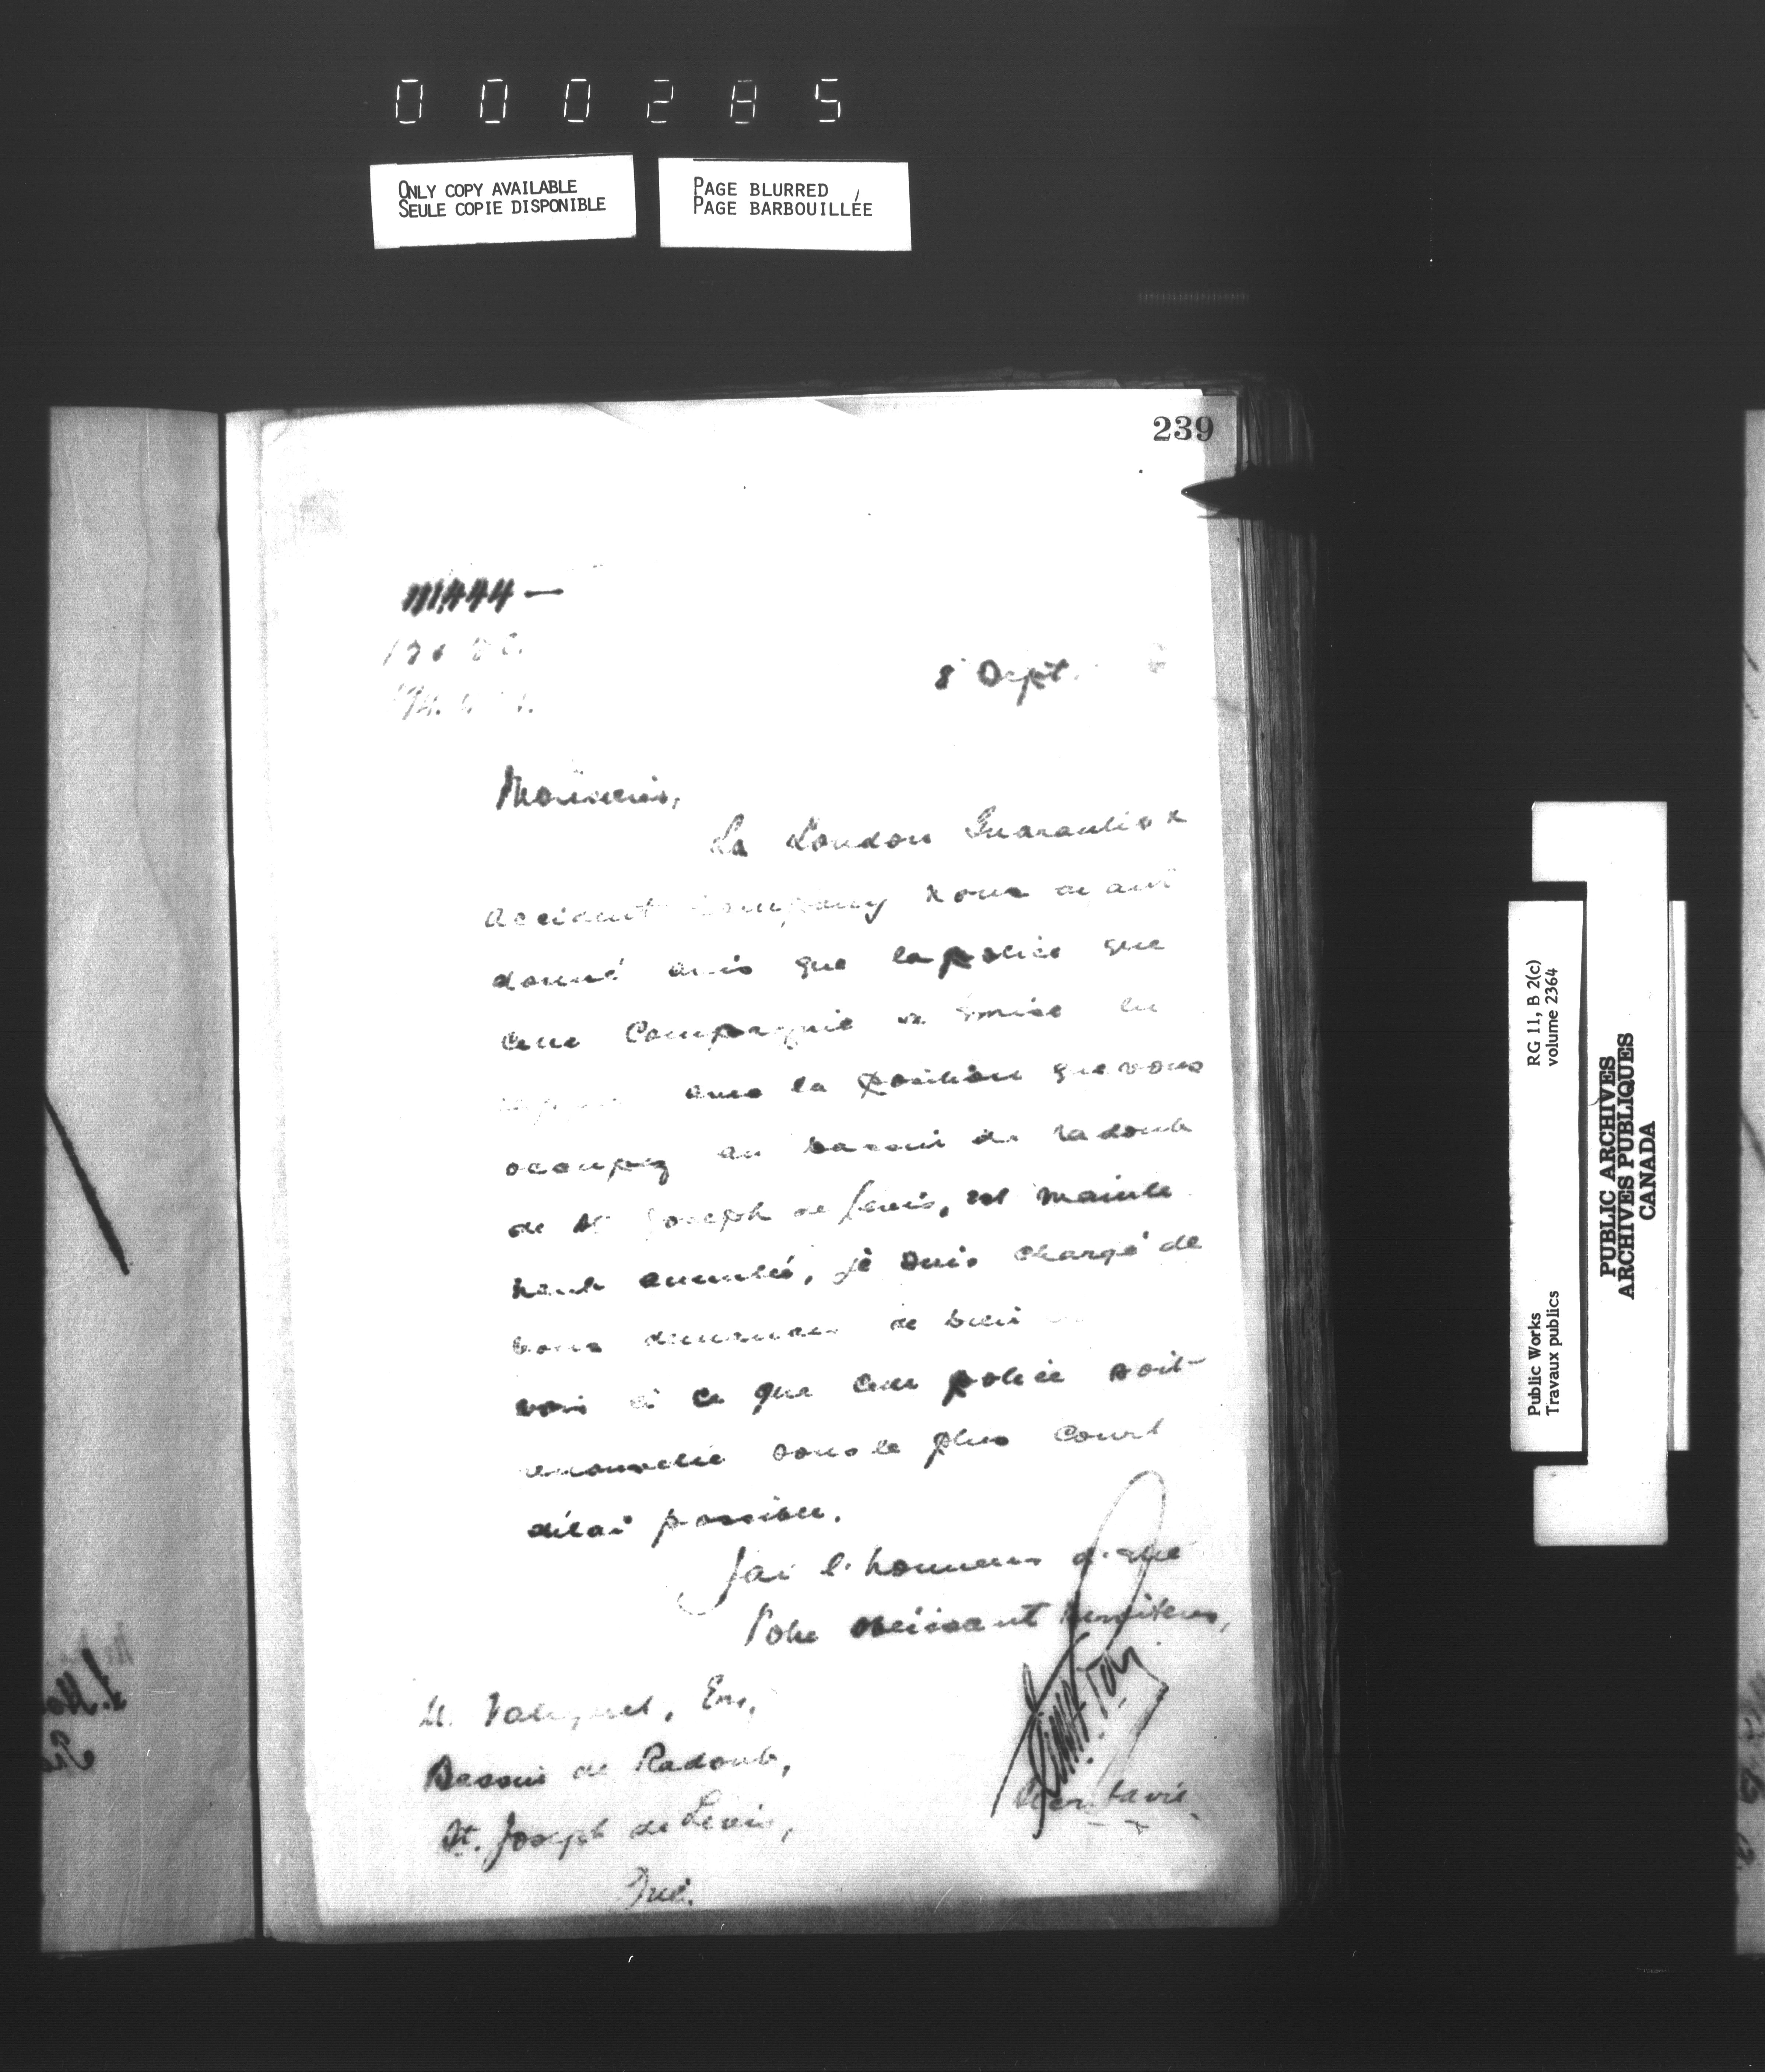 000285
ONLY COPY AVAILABLE
SEULE COPIE DISPONIBLE
PAGE BLURRED
PAGE BARBOUILLÉE
239
8 Sept.
Monsieur,
La London Guarantie &
Accident Company nous ayant
donné avis que la police que
cette Compagnie a émise en
avec la position que vous
occupez au bassin de radoub
de St Joseph de Levis, est mainte
nant annulée, je suis chargé de
vous demander de bien
voir à ce que cette police soit
renouvelée sous le plus court
délai possible.
J'ai l'honneur d'être
Votre obéissant serviteur,
Secrétaire
Esq,
Bassin de Radoub,
St. Joseph de Levis,
Qué.
Public Works
Travaux publics
RG 11, B 2(c)
volume 2364
PUBLIC ARCHIVES
ARCHIVES PUBLIQUES
CANADA